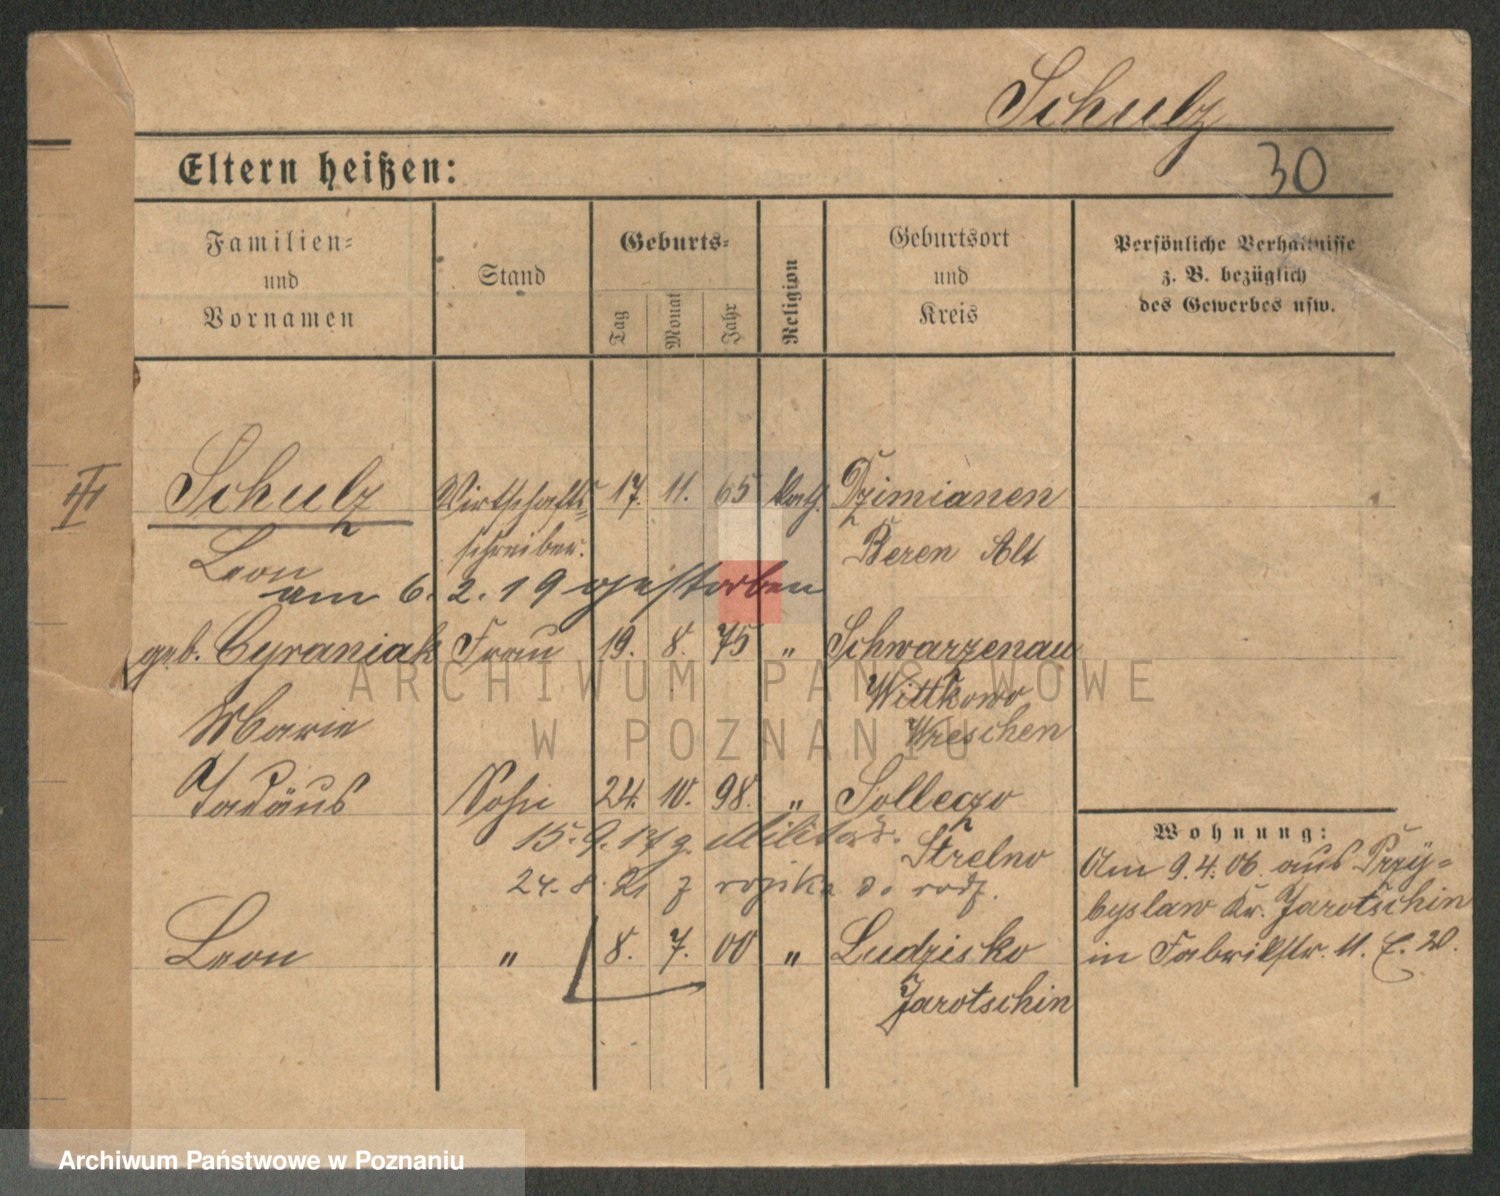 Schulz
30
Eltern heißen:
Familien- und Vornamen
Stand
Geburts-
Tag
Monat
Jahr
Religion
Geburtsort und Kreis
Persönliche Verhältnisse z. B. bezüglich des Gewerbes usw.
III
Schulz Wirtschafts- 17. 11. 65 kath. Dzimianen
Leon schreiber. Beren Alt
am 6. 2. 19 gestorben
geb. Cyraniak Frau 19. 8. 75 " Schwarzenau
Marie Wittkowo
Wreschen
Tadäus Sohn 24. 10. 98. " Sollegzo
15. 9. 17 z. Militär. Strelno
24. 8. 21 z do rodz.
Leon " 8. 7. 00 " Ludzisko
Jarotschin
Wohnung:
Am 9. 4. 06. aus Przy-
byslaw Kr. Jarotschin
in Fabrikstr. 11.
ARCHIWUM PAŃSTWOWE
W POZNANIU
Archiwum Państwowe w Poznaniu